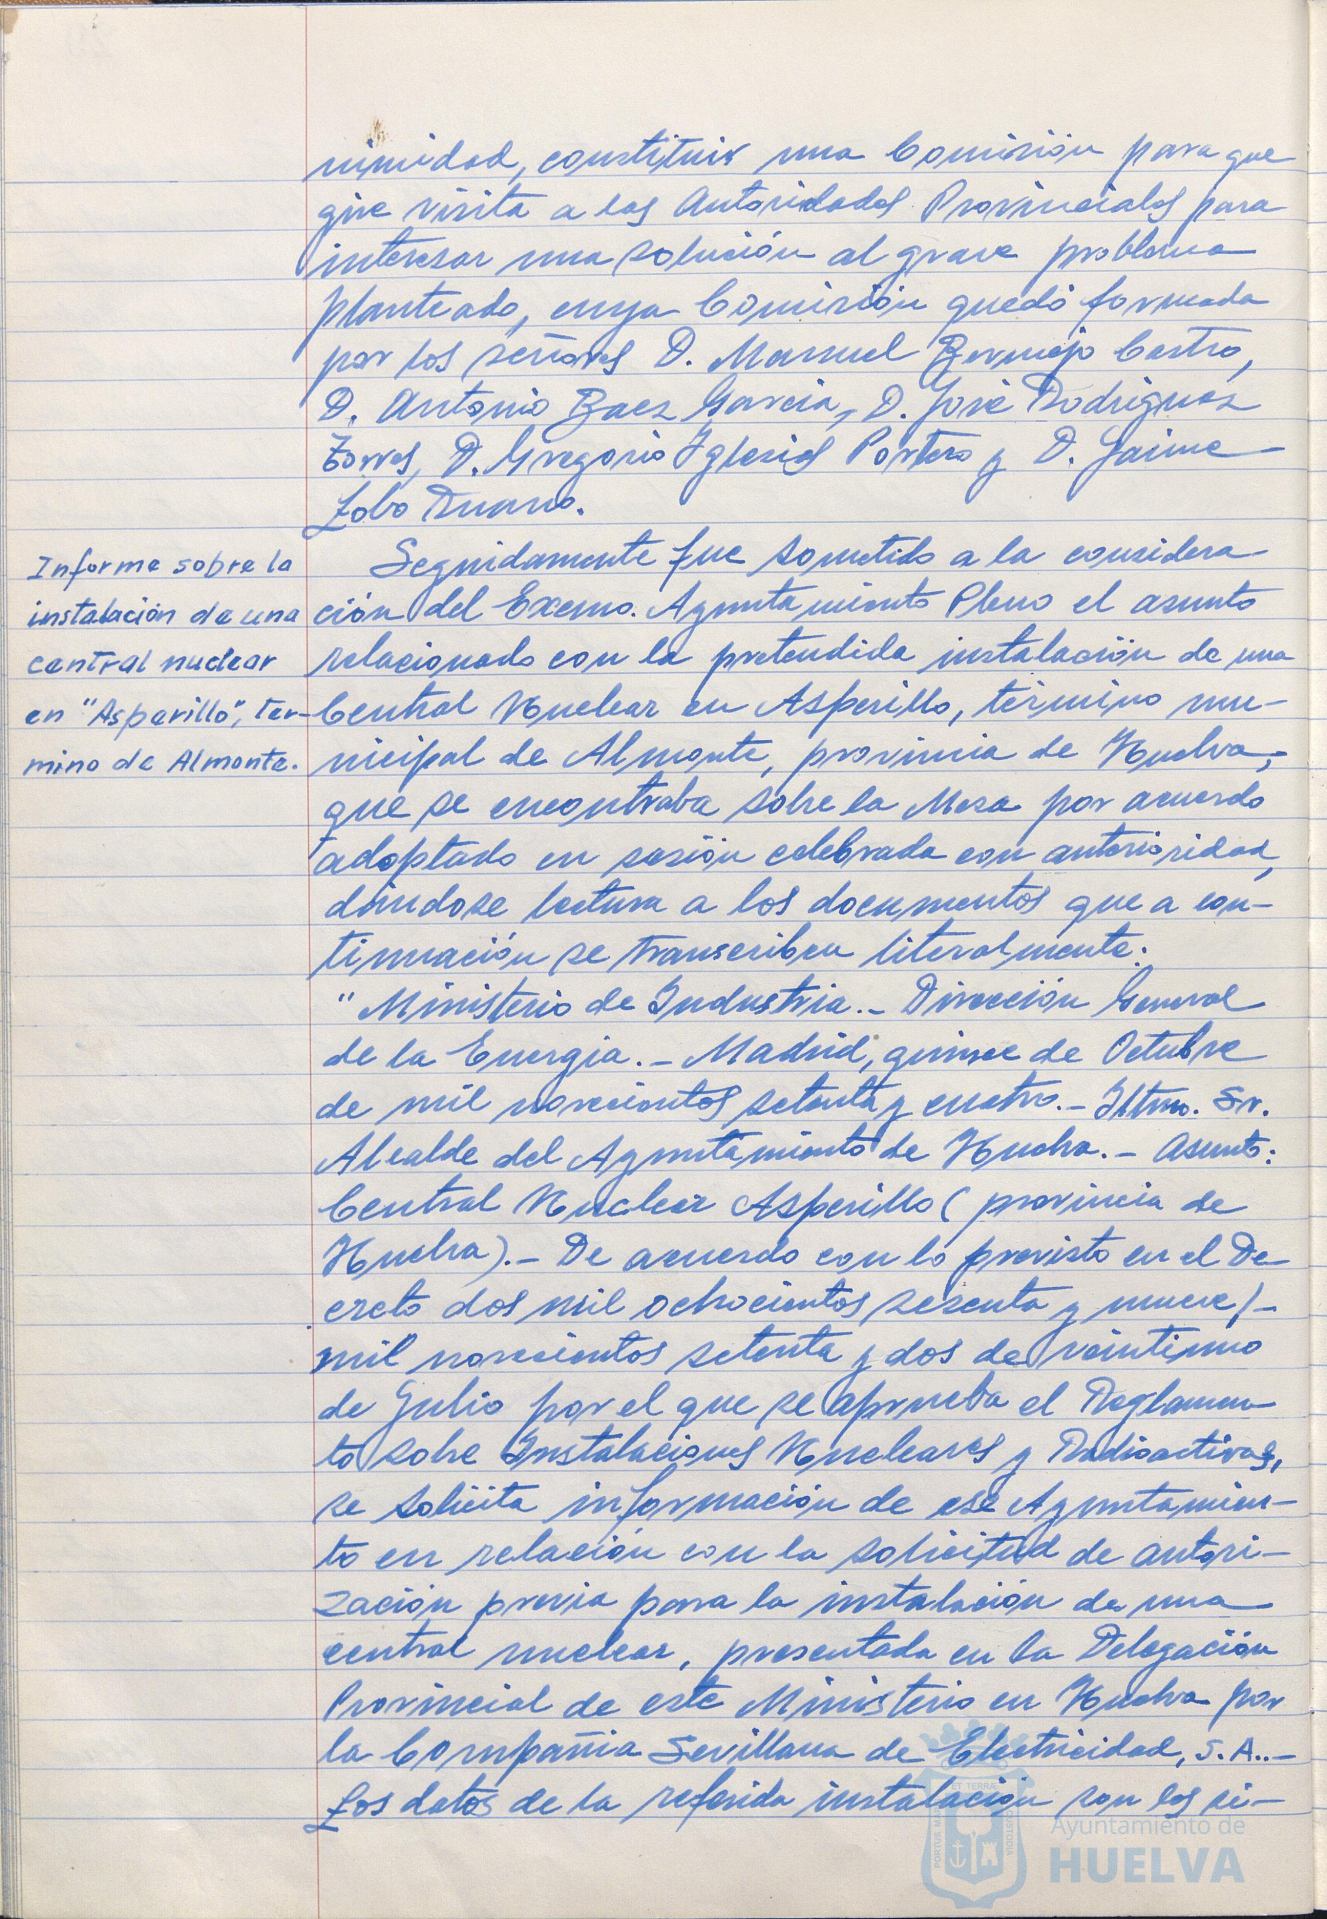 nimidad, constituir una Comisión para que
gire visita a las Autoridades Provinciales para
interesar una solución al grave problema
planteado, cuya Comisión quedó formada
por los señores D. Manuel Bermejo Castro,
D. Antonio Baez García, D. José Rodriguez
Torres, D. Gregorio Iglesias Portero y D. Jaime
Lobo
Seguidamente fue sometido a la considera
ción del Excmo. Ayuntamiento Pleno el asunto
relacionado con la pretendida instalación de una
Central Nuclear en Asperillo, término mu-
nicipal de Almonte, provincia de Huelva,
que se encontraba sobre la Mesa por acuerdo
adoptado en sesión celebrada con anterioridad,
dándose lectura a los documentos que a con-
tinuación se transcriben literalmente:
Informe sobre la
instalación de una
central nuclear
en "Asperillo", tér-
mino de Almonte.
"Ministerio de Industria.- Dirección General
de la Energia.- Madrid, quince de Octubre
de mil novecientos setenta y cuatro.- Iltmo. Sr.
Alcalde del Ayuntamiento de Huelva.- Asunto:
Central Nuclear Asperillo (provincia de
Huelva).- De acuerdo con lo previsto en el De-
creto dos mil ochocientos sesenta y nueve/-
mil novecientos setenta y dos de veintiuno
de Julio por el que se aprueba el Reglamen
to sobre Instalaciones Nucleares y Radioactivas,
se solicita información de ese Ayuntamien-
to en relación con la solicitud de autori-
zación previa para la instalación de una
central nuclear, presentada en la Delegación
Provincial de este Ministerio en Huelva por
la Compañia Sevillana de Electricidad, S.A..-
Los datos de la referida instalación son los si-
ET TERRAE
PORTUS MARIS
CUSTODIA
Ayuntamiento de
HUELVA